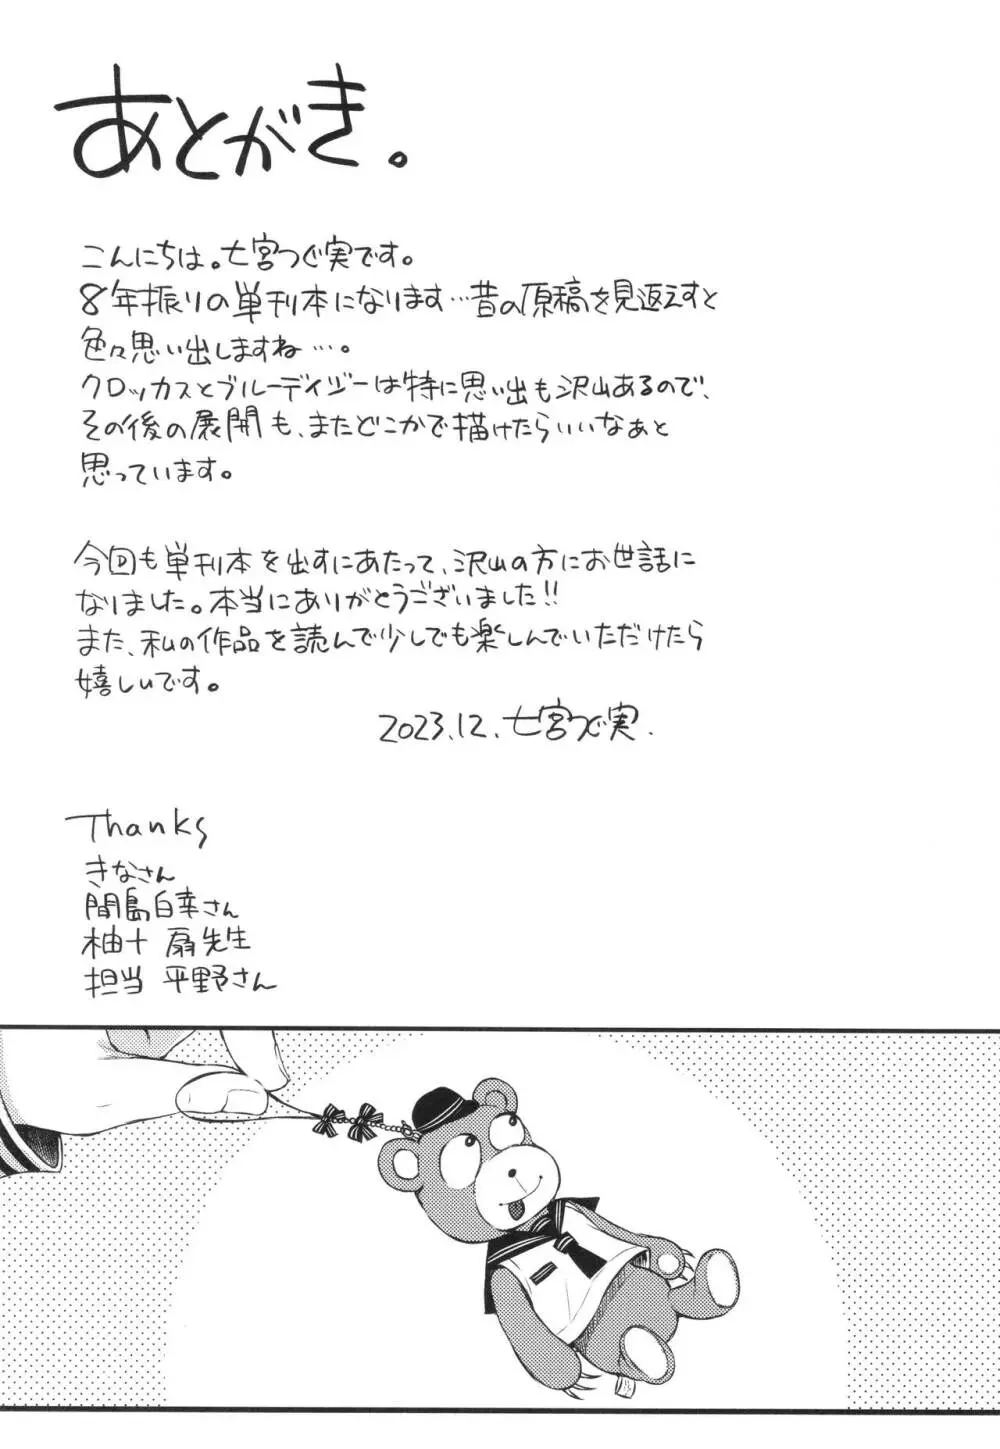 あとがき。
こんにちは。七宮つぐ実です。
8年振りの単刊本になります…昔の原稿を見返えすと
色々思い出しますね…。
クロッカスとブルーデイジーは特に思い出も沢山あるので、
その後の展開も、またどこかで描けたらいいなぁと
思っています。
今回も単刊本を出すにあたって、沢山の方にお世話に
なりました。本当にありがとうございました!!
また、私の作品を読んで少しでも楽しんでいただけたら
嬉しいです。
2023.12.七宮つぐ実.
Thanks
きなさん
間島白幸さん
柚十 扇先生
担当 平野さん